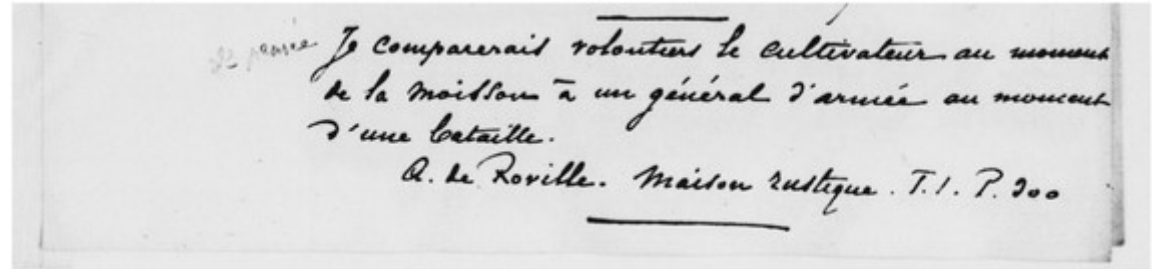 Je comparerais volontiers le cultivateur au moment
de la moisson à un général d'armée au moment
d'une bataille.
A. de Roville. Maison rustique. T. I. P. 300